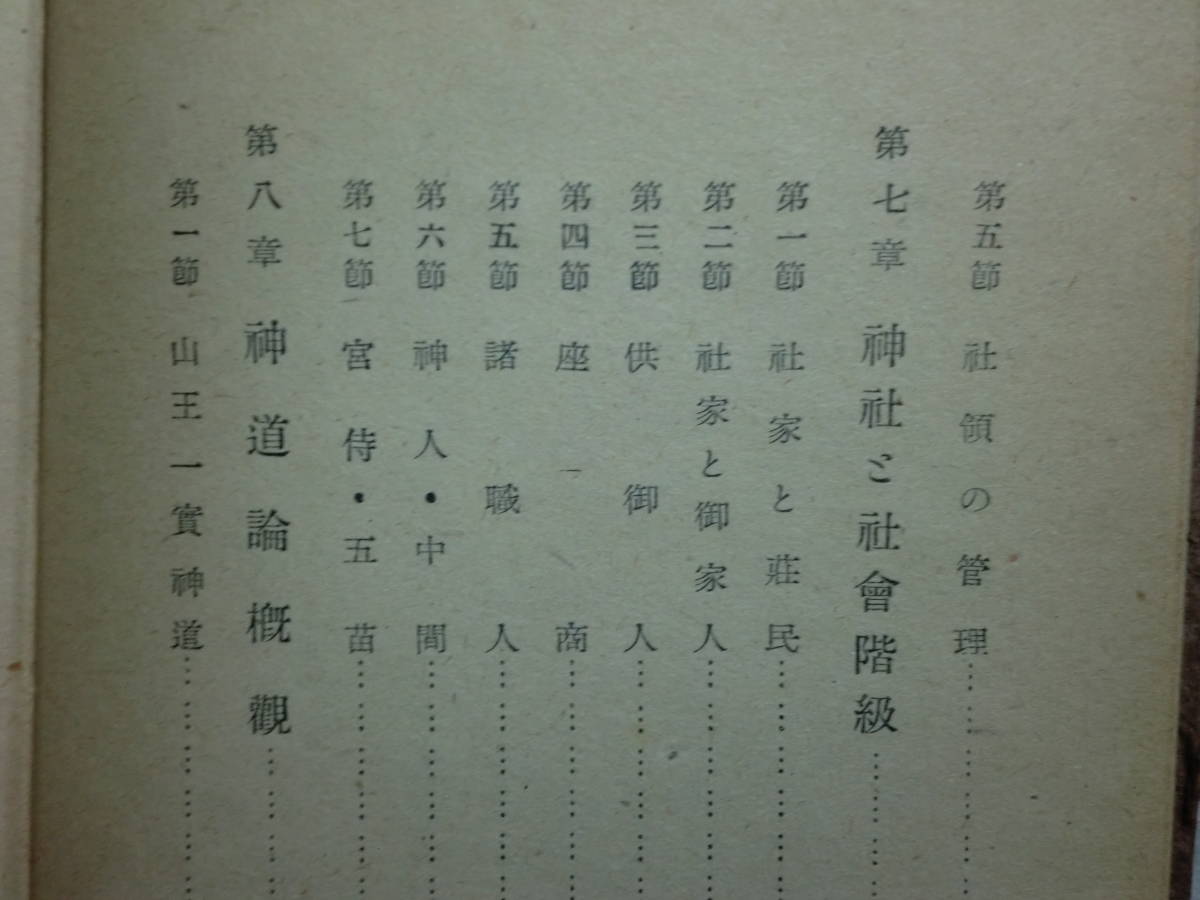 第五節 社領の管理
第七章 神社と社會階級
第一節 社家と莊民
第二節 社家と御家人
第三節 供御人
第四節 座商
第五節 諸職人
第六節 神人・中間
第七節 宮侍・五苗
第八章 神道論槪觀
第一節 山王一實神道